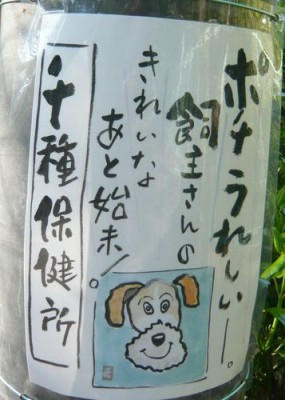 ポチうれしいー。
飼主さんの
きれいな
あと始末!。
千種保健所